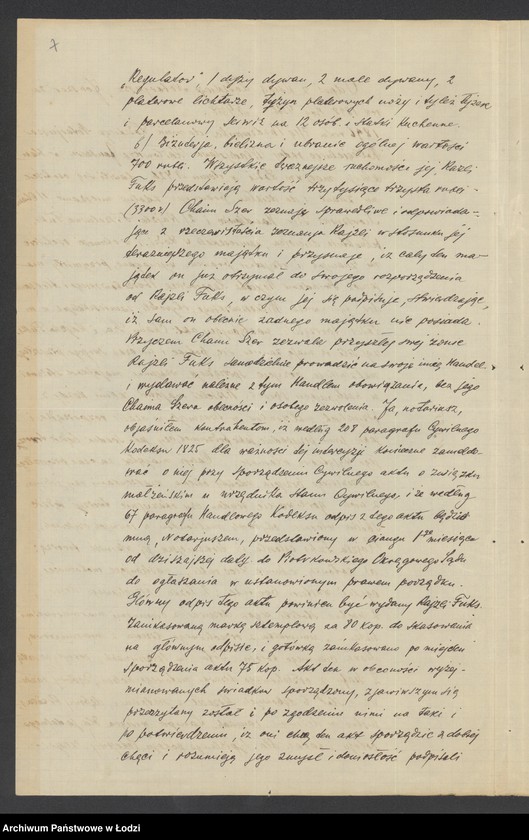 7
„Regulator” 1 duży dywan, 2 małe dywany, 2
platerowe lichtarze, tuzin platerowych noży i tyleż łyżek
i porcelanowy serwis na 12 osób i statki kuchenne.
6/ Biżuterja, bielizna i ubranie ogólnej wartości
700 rubli. Wszystkie ruchomości jej Rajzli
Fuks przedstawiają wartość trzytysiące trzysta rubli
(3300 r) Chaim Szer zeznaję sprawiedliwe i odpowiada-
jące z rzeczywistością zeznania Rajzli w stosunku jej
teraźniejszego majątku i przyznaje, iż cały ten ma-
jątek on już otrzymał do swojego rozporządzenia
od Rajzli Fuks, w czym jej się podpisuje, stwierdzając,
iż sam on obecnie żadnego majątku nie posiada.
Przyczem Chaim Szer zezwala przyszłej swej żonie
Rajzli Fuks samodzielnie prowadzić na swoje imię Handel
i wydawać należne z tym Handlem obowiązania, bez jego
Chaima Szera obecności i osobego zezwolenia. Ja, notariusz,
objaśniłem kontrahentom, iż według 208 paragrafu Cywilnego
Kodeksu 1825 dla ważności tej intercyzji konieczne zameldo-
wać o niej przy sporządzeniu Cywilnego aktu o związku
małżeńskim u urzędnika Stanu Cywilnego, i że według
67 paragrafu Handlowego Kodeksu odpis z tego aktu będzie
mną, Notaryuszem, przedstawiony w ciągu 1go miesiąca
od dzisiajszej daty do Piotrkowskiego Okręgowego Sądu
do ogłaszania w ustanowionym prawem porządku.
Główny odpis tego aktu powinien być wydany Rajzli Fuks.
Zainkasowaną marką stemplową za 80 kop. do skasowania
na głównym odpisie, i gotówką zainkasowano po miejscu
sporządzania aktu 75 kop. Akt ten w obecności wyżej-
mianowanych świadków sporządzony, zjawiwszym się
przeczytany został i po zgodzeniu nimi na taki i
po potwierdzeniu, iż oni chcą ten akt sporządzić z dobrej
chęci i rozumieją jego zmysł i doniosłość podpisali
Archiwum Państwowe w Łodzi
Archiwum Państwowe w Łodzi